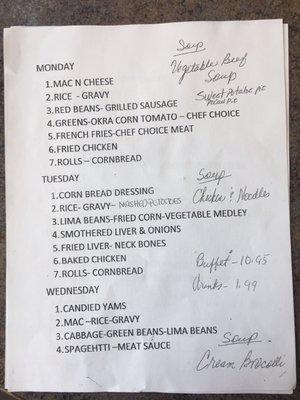 Soup
MONDAY
Vegetable Beef
Soup
1.MAC N CHEESE
2.RICE - GRAVY
Sweet Potato pie
Pecan Pie
3.RED BEANS- GRILLED SAUSAGE
4.GREENS-OKRA CORN TOMATO – CHEF CHOICE
5.FRENCH FRIES-CHEF CHOICE MEAT
6.FRIED CHICKEN
7.ROLLS – CORNBREAD
TUESDAY
Soup
1.CORN BREAD DRESSING
Chicken & Noodles
2.RICE- GRAVY– MASHED POTATOES
3.LIMA BEANS-FRIED CORN-VEGETABLE MEDLEY
4.SMOTHERED LIVER & ONIONS
5.FRIED LIVER- NECK BONES
6.BAKED CHICKEN
Buffet - 10.95
7.ROLLS- CORNBREAD
Drinks - 1.99
WEDNESDAY
1.CANDIED YAMS
2.MAC –RICE-GRAVY
3.CABBAGE-GREEN BEANS-LIMA BEANS
4.SPAGEHTTI –MEAT SAUCE
Soup
Cream Brocolli